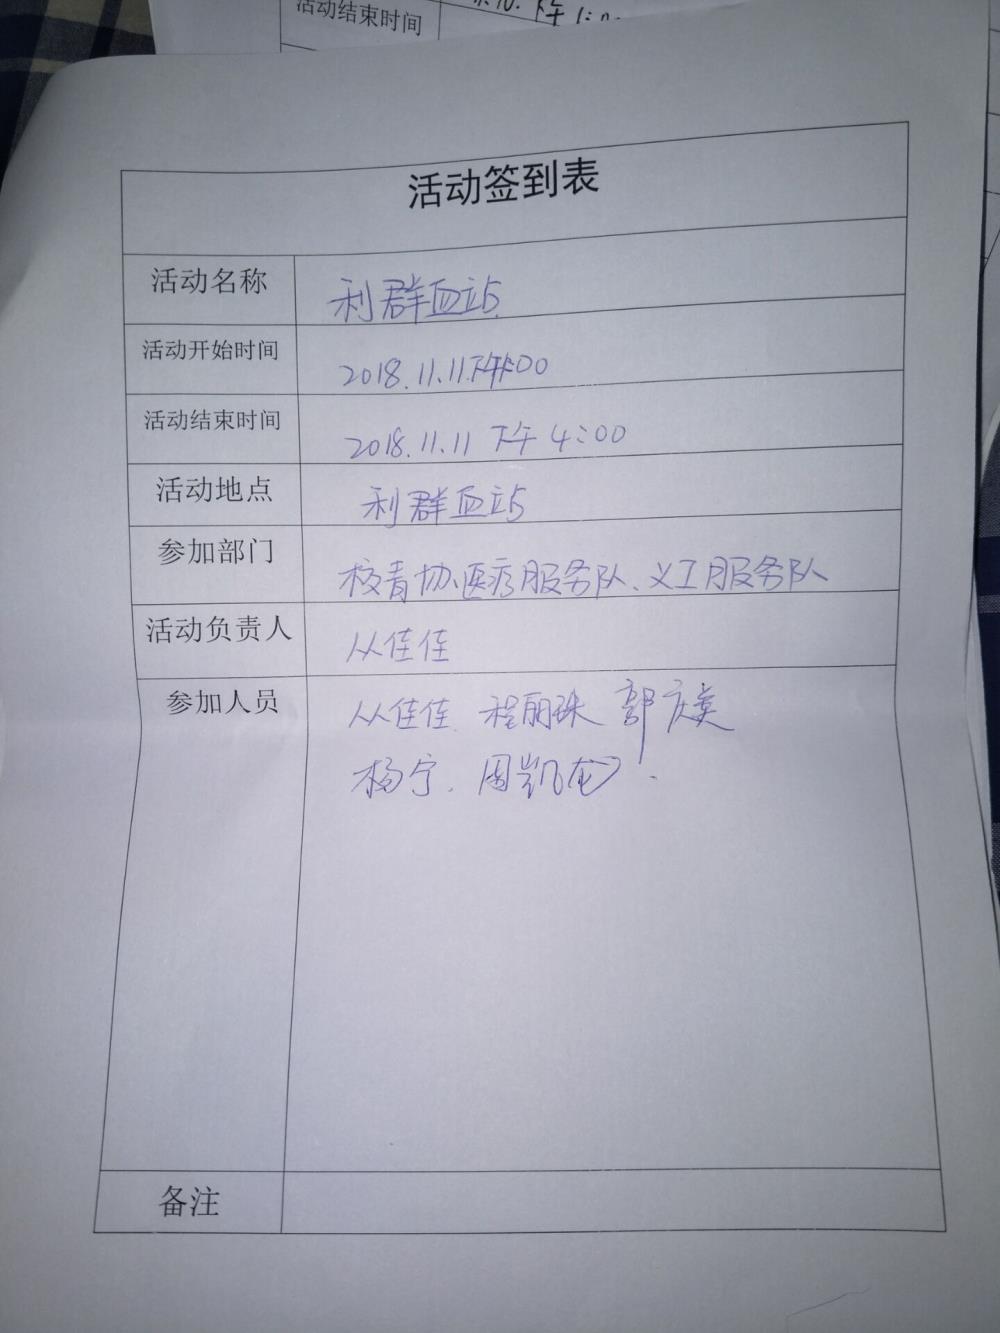 活动结束时间
活动签到表
活动名称 利群血站
活动开始时间 2018.11.11 下午1:00
活动结束时间 2018.11.11 下午 4:00
活动地点 利群血站
参加部门 校青协、医疗服务队、义工服务队
活动负责人 从佳佳
参加人员 从佳佳 程丽珠 郭庆美
杨宁. 周凯龙.
备注